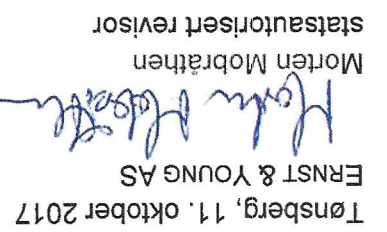 Tønsberg, 11. oktober 2017
ERNST & YOUNG AS
Morten Mobråthen
statsautorisert revisor